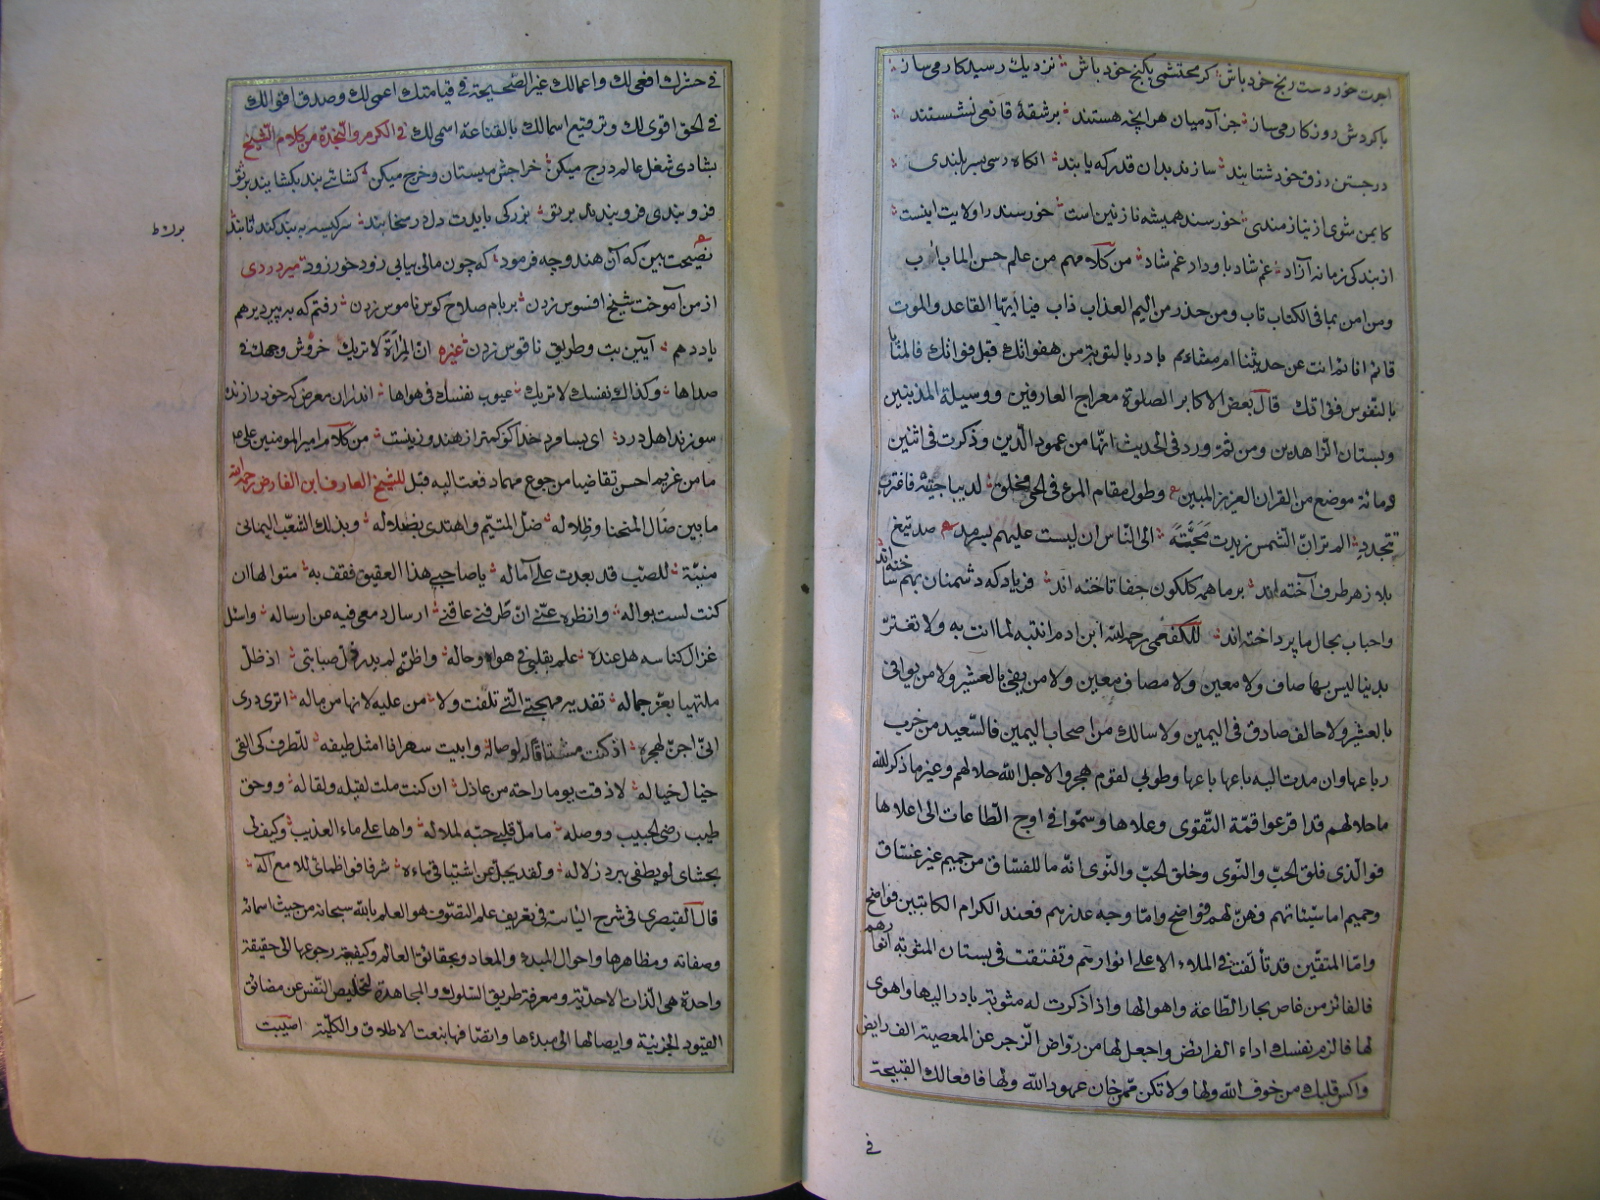 اجرت خور دست رنج خود باش گر محتشمی بکنج خود باش نزدیک رسید کار می ساز
با گردش روزکار می ساز جز آدمیان هر آنچه هستند بر شقۀ قانعی نشستند
در جستن رزق خود شتابند سازند بدان قدر که یابند انکاه رسی بسربلندی
کایمن شوی از نیازمندی خورسند همیشه نازنین است خورسند راولایت اینست
از بندکی زمانه آزاد غم شاد باو داد غم شاد من کلامهم من علم حسن الماب اب
ومن امن بما فی الکتاب تاب ومن حذر من الیم العذاب ذاب فیا ایها القاعد والموت
قائم انائم انت عن حدیثنا ام بادر بالتوبة من هفواتك قبل فواتك فالمنایا
بالنفوس فواتك قال بعض الاکابر الصلوة معراج العارفین ووسیلة المذنبین
وبستان الزاهدین ومن ثمّ ورد فی الحدیث انها من عمود الدین وذکرت فی اثنین
ومائة موضع من القران العزیز المبین وطول مقام المرء فی الحی مخلق لدیباجتیه فاغترب
تتجدد الم تر ان الشمس زیدت محبّة الی الناس ان لیست علیهم بسرمد صد تیغ
بلا زهر طرف آخته اند بر ما همه کلکون جفا تاخته اند فریاد که دشمنان بهم ساخته اند
واحباب بحال ما پرداخته اند للکفعمی رحمه الله ابن ادم انتبه لما انت به ولا تغترّ
بدنیا لیس بها صاف ولا معین ولا مصاف معین ولا من یفی بالعشیر ولا من یوافی
بالعشیر ولا حالف صادق فی الیمین ولا سالك من اصحاب الیمین فالسعید من خرب
رباعها وان مدت الیه باعها باعها وطوبی لقوم هجروا لاجل الله حلالهم وغیر ما ذکر الله
ما حلا لهم قد اقرعوا قمّة التقوی وعلاها وسمّوا فی اوج الطاعات الی اعلاها
فوالذی فلق الحبّ والنوی وخلق الحبّ والنوی انّه ما للفسّاق من جمیم غیر غسّاق
وحمیم اما سیّئاتهم فهنّ لهم فواضح وامّا وجه عذرهم فعند الکرام الکاتبین فواضح
وامّا المتقین قد تألّقت فی الملاء الاعلی انوارهم وتفتقت فی بستان المثوبة انوارهم
فالفائز من غاص بحار الطاعة واهوالها واذا ذکرت له مثوبة بادر الیها واهوی
لها فالزم نفسك اداء الفرائض واجعل لها من روّاض الزجر عن المعصیة الف رایض
واکس قلبك من خوف الله ولها ولا تکن ممن خان عهود الله ولها فافعالك القبیحة
فی
فی حشرك افعی لك واعمالك غیر الصحیحة فی قیامتك اعمی لك وصدق اقوالك
فی الحق اقوی لك وترقیع اسمالك بالقناعة اسمی لك فی الکرم والنجدة من کلام الشیخ
بشادی شغل عالم درج میکن خراجش میستان وخرج میکن کشائی بند بکشایند برتو
فرو بندی فرو بندند برتو بزرکی بایدت دل در سخا بند سر کیسه به بند کندنا بند
بورك
نصیحت بین که آن هندو چه فرمود که چون مالی بیابی زود خور زود میر دردی
از من آموخت شیخ افسوس زدن بر بام صلاح کوس ناموس زدن رفتم که به پیر دیرهم
یاد دهم آیین بت وطریق ناقوس زدن غیره انّ المرآة لا تریك خروش وجهك فی
صداها وکذاك نفسك لا تریك عیوب نفسك فی هواها اندران معرض که خود را زنده
سوزند اهل درد ای بسا مرد خدا کو کمتر از هندو زنیست من کلام امیر المومنین علی
ما من غریم احسن تقاضیا من جوع مهما دفعت الیه قبل للشیخ العارف ابن الفارض رحمه الله
ما بین ضال المنحنا وظلاله ضلّ المتیّم واهتدی بضلاله وبذلك الشعب الیمانی
منیّة للصب قد بعدت علی آماله یا صاحبی هذا العقیق فقف به متوالها ان
کنت لست بواله وانظره عنّی انّ طرفی عاقنی ارسال دمعی فیه عن ارساله واسئل
غزال کناسه هل عنده علم بقلبی فی هواه وحاله واظنّه لم یدر ذلّ صبابتی اذ ظلّ
ملتهیا بعزّ جماله تفدیه مهجتی التی تلفت ولا منّ علیه لانها من ماله اتری دری
انّی احنّ لهجره اذ کنت مشتاقًا له لوصاله وابیت سهرانا امثل طیفه للطرف کی القی
خیال خیاله لا ذقت یوما راحة من عاذل ان کنت ملت لقیله ولقاله ووحق
طیب رضی الحبیب ووصله ما ملّ قلبی حبّه لملاله واها علی ماء العذیب وکیف لی
بحشای لو یطفی ببرد زلاله ولقد یجلّ عن اشتیاقی ماءه شرفا فوا ظمائی للامع آله
قال القیصری فی شرح التائیة فی تعریف علم التصوّف هو العلم بالله سبحانه من حیث اسمائه
وصفاته ومظاهرها واحوال المبدء والمعاد وبحقائق العالم وکیفیة رجوعها الی حقیقة
واحدة هی الذات الاحدیة ومعرفة طریق السلوك والمجاهدة لتخلیص النفس عن مضائق
القیود الجزئیة وایصالها الی مبدءها واتصافها بنعت الاطلاق والکلیّة اصیبت